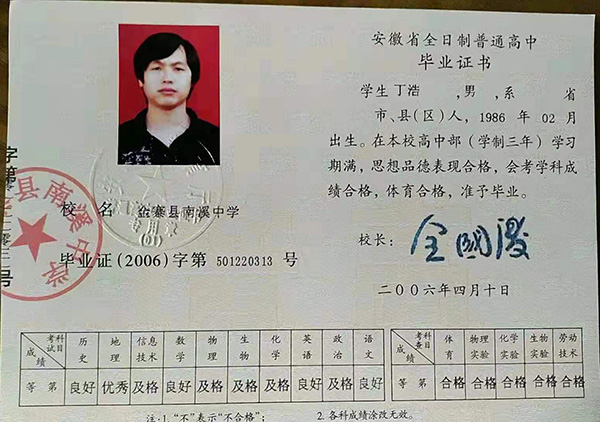 安徽省全日制普通高中
毕业证书
学生丁浩 ,男,系 省
市、县(区)人，1986 年 02 月
出生。在本校高中部（学制三年）学习
期满，思想品德表现合格，会考学科成
绩合格，体育合格，准予毕业。
校长：
二〇〇六年四月十日
校 名 金寨县南溪中学
毕业证(2006)字第 501220313 号
县南溪中学
字第
号
专用章
(01)
科目 考试 成绩 历史 地理 信息技术 数学 物理 生物 化学 英语 政治 语文
等 第 良好 优秀 及格 良好 及格 及格 及格 良好 及格 良好
科目 考查 成绩 体育 物理实验 化学实验 生物实验 劳动技术
等 第 合格 合格 合格 合格 合格
注:1.“不”表示“不合格”； 2.各科成绩涂改无效。